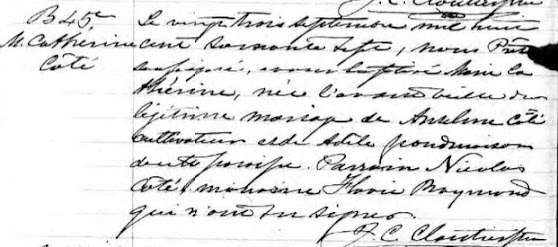 J. C. Cloutier Ptre
B45e Le vingt trois septembre mil huit
M. Catherine cent soixante sept, nous Prêtre
Coté soussigné, avons baptisé Marie Ca
thérine, née l'avant veille du
légitime mariage de Anselme Côté
cultivateur et de Adèle
de cette paroisse. Parrain Nicolas
Côté, marraine Flavie Raymond
qui n'ont su signer.
J. C. Cloutier Ptre